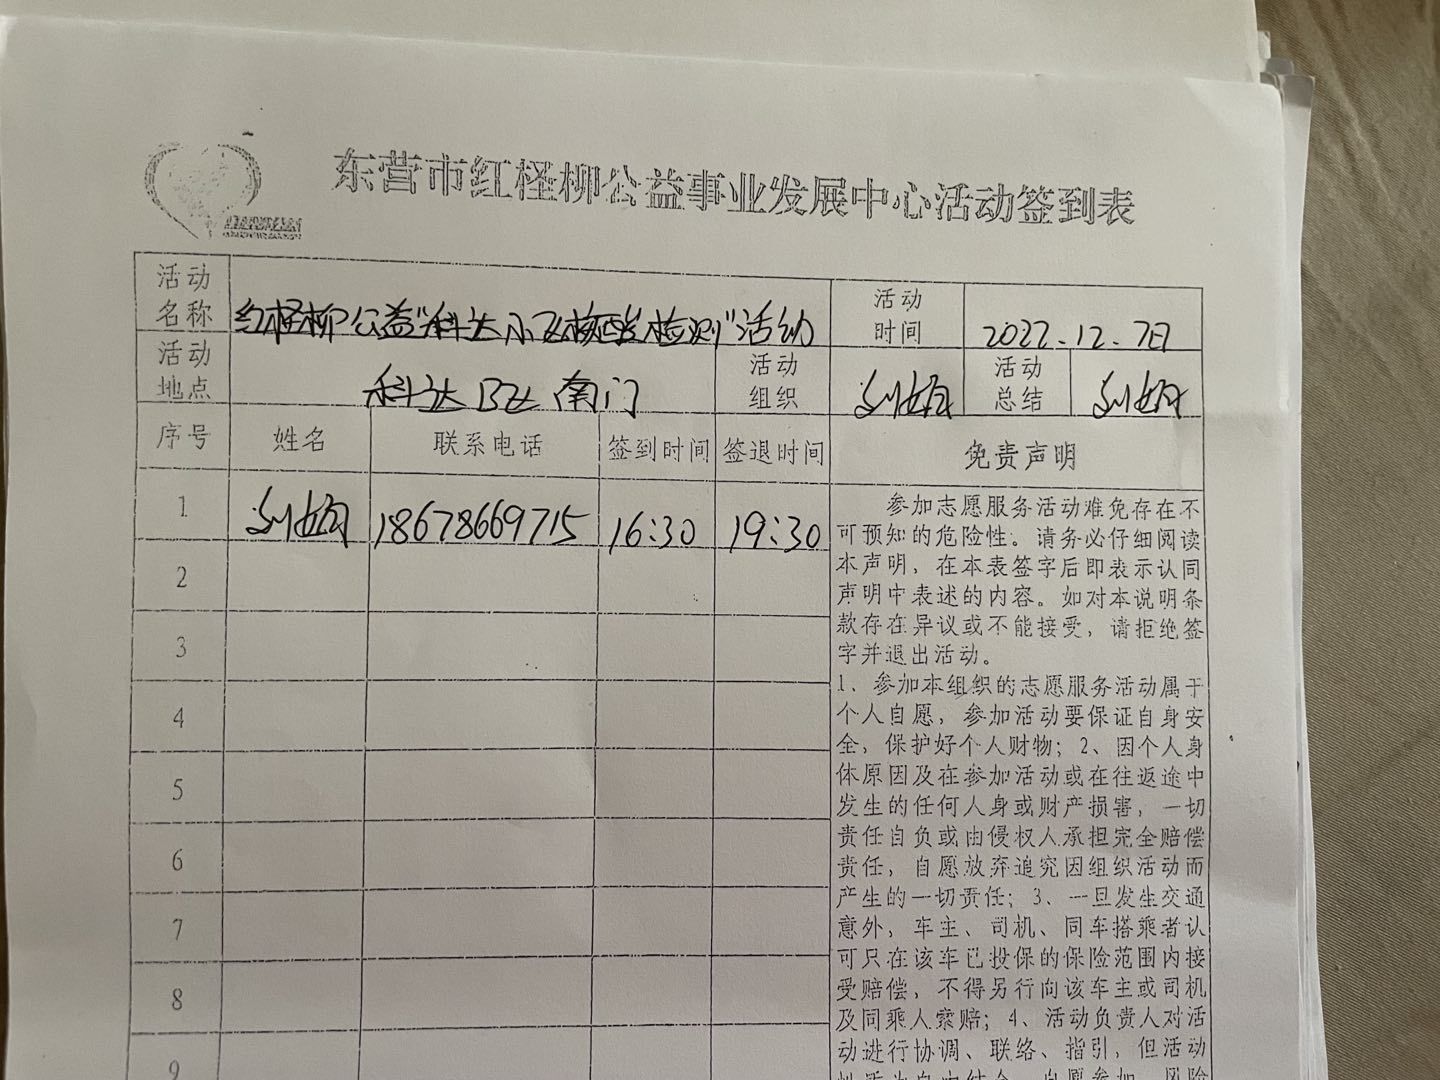 东营市红柽柳公益事业发展中心活动签到表
活动名称 红柽柳公益“科达小区核酸检测”活动 活动时间 2022.12.7日
活动地点 科达B区南门 活动组织 刘娟 活动总结 刘娟
序号 姓名 联系电话 签到时间 签退时间 免责声明
1 刘娟 18678669715 16:30 19:30
2
3
4
5
6
7
8
9
参加志愿服务活动难免存在不
可预知的危险性。请务必仔细阅读
本声明，在本表签字后即表示认同
声明中表述的内容。如对本说明条
款存在异议或不能接受，请拒绝签
字并退出活动。
1、参加本组织的志愿服务活动属于
个人自愿，参加活动要保证自身安
全，保护好个人财物；2、因个人身
体原因及在参加活动或在往返途中
发生的任何人身或财产损害，一切
责任自负或由侵权人承担完全赔偿
责任，自愿放弃追究因组织活动而
产生的一切责任；3、一旦发生交通
意外，车主、司机、同车搭乘者认
可只在该车已投保的保险范围内接
受赔偿，不得另行向该车主或司机
及同乘人索赔；4、活动负责人对活
动进行协调、联络、指引，但活动